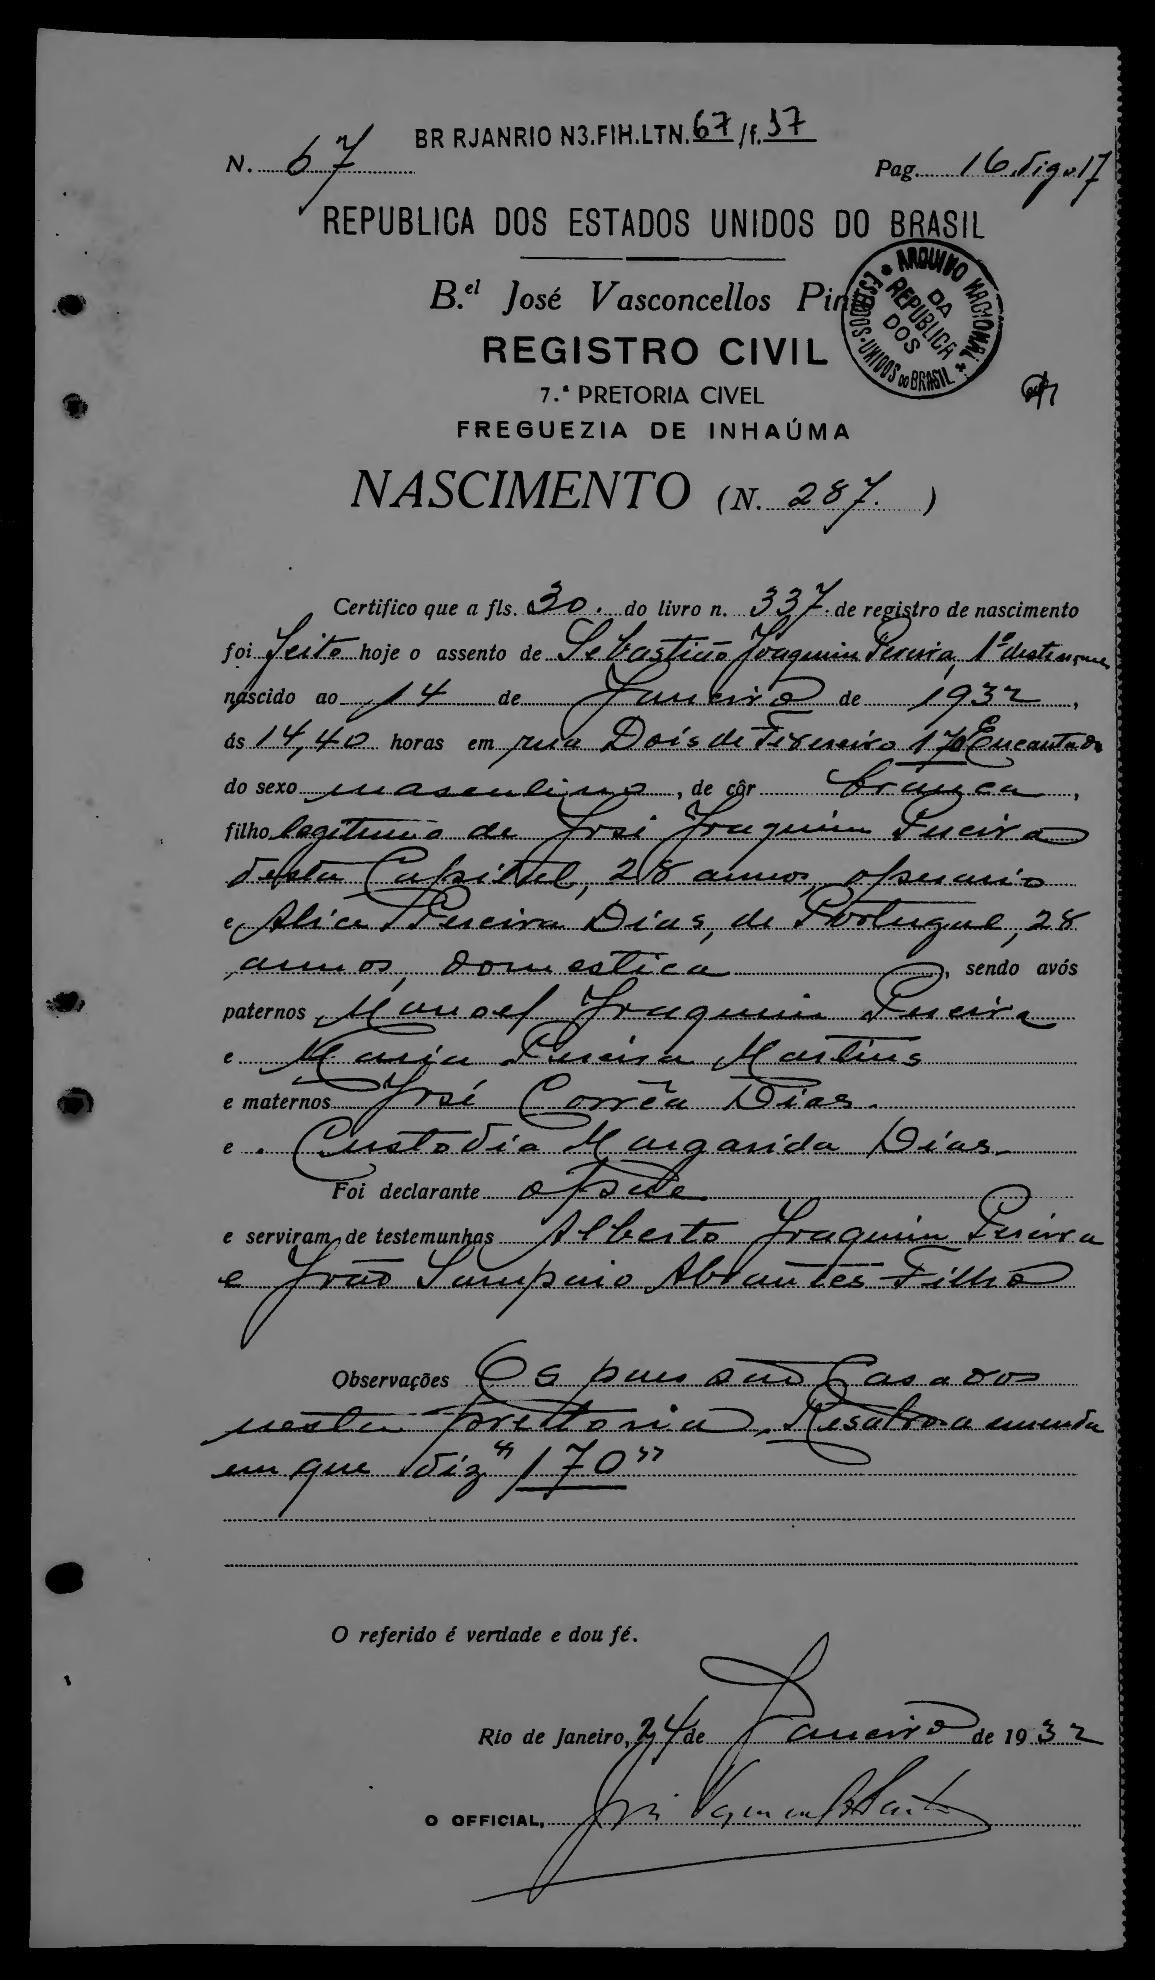 BR RJANRIO N3.FIH.LTN.67/f.37
N. 67 Pag. 16.
REPUBLICA DOS ESTADOS UNIDOS DO BRASIL
B.el José Vasconcellos Pin
ARQUIVO NACIONAL
DA REPUBLICA DOS
ESTADOS-UNIDOS DO BRASIL
REGISTRO CIVIL
7.ª PRETORIA CIVEL
FREGUEZIA DE INHAÚMA
NASCIMENTO (N. 287. )
Certifico que a fls. 30. do livro n. 337. de registro de nascimento
foi feito hoje o assento de Sebastião Joaquim Pereira, 1º deste nome
nascido ao 14 de Janeiro de 1932,
ás 14,40 horas em rua Dois de Fevereiro 170 Encantado
do sexo masculino, de côr branca,
filho legitimo de José Joaquim Pereira
desta Capital, 28 annos, operario
e Alice Pereira Dias, de Portugal, 28
annos, domestica, sendo avós
paternos Manoel Joaquim Pereira
e Maria Pereira Martins
e maternos José Corrêa Dias.
e Custodia Margarida Dias.
Foi declarante o pae
e serviram de testemunhas Alberto Joaquim Pereira
e João Sampaio Abrantes Filho
Observações Os paes são casados
nesta pretoria. Resalvo a emenda
em que diz "170"
O referido é verdade e dou fé.
Rio de Janeiro, 24 de Janeiro de 1932
O OFFICIAL,